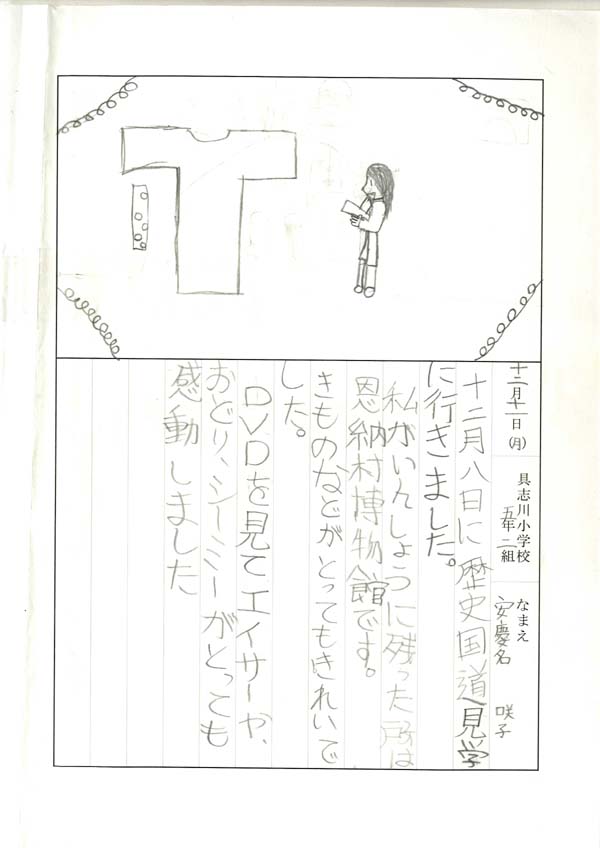 十二月十一日(月)
具志川小学校
五年二組
なまえ
安慶名 咲子
十二月八日に歴史国道見学
に行きました。
私がいんしょうに残った所は
恩納村博物館です。
きものなどがとってもきれいで
した。
DVDを見てエイサーや、
おどり、シーミーがとっても
感動しました